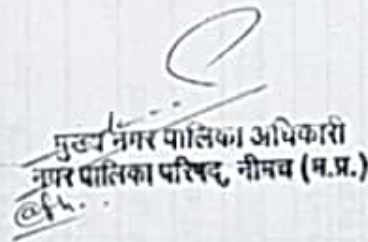 मुख्य नगर पालिका अधिकारी
नगर पालिका परिषद्, नीमच (म.प्र.)